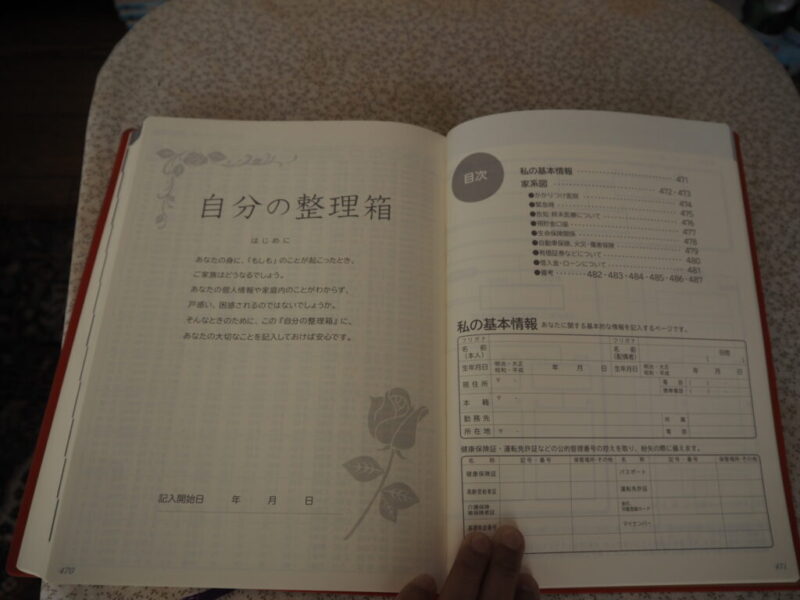 自分の整理箱
はじめに
あなたの身に、「もしも」のことが起こったとき、
ご家族はどうなるでしょう。
あなたの個人情報や家庭内のことがわからず、
戸惑い、困惑されるのではないでしょうか。
そんなときのために、この『自分の整理箱』に、
あなたの大切なことを記入しておけば安心です。
記入開始日 年 月 日
470
目次
私の基本情報 471
家系図 472・473
●かかりつけ医院 474
●緊急時 475
●告知・終末医療について 476
●預貯金口座 477
●生命保険関係 478
●自動車保険、火災・傷害保険 479
●有価証券などについて 480
●借入金・ローンについて 481
●備考 482・483・484・485・486・487
私の基本情報 あなたに関する基本的な情報を記入するページです。
フリガナ フリガナ
名前(本人) 名前(配偶者) 旧姓 ( )
生年月日 明治・大正 昭和・平成 年 月 日 生年月日 明治・大正 昭和・平成 年 月 日
現住所 〒 - 電話 ( ) -
携帯電話 ( ) -
本籍 〒 -
勤務先 所属
所在地 〒 - 電話
健康保険証・運転免許証などの公的管理番号の控えを取り、紛失の際に備えます。
名称 記号・番号 保管場所・その他 名称 記号・番号 保管場所・その他
健康保険証 パスポート
高齢受給者証 運転免許証
介護保険被保険者証
マイナンバー
471